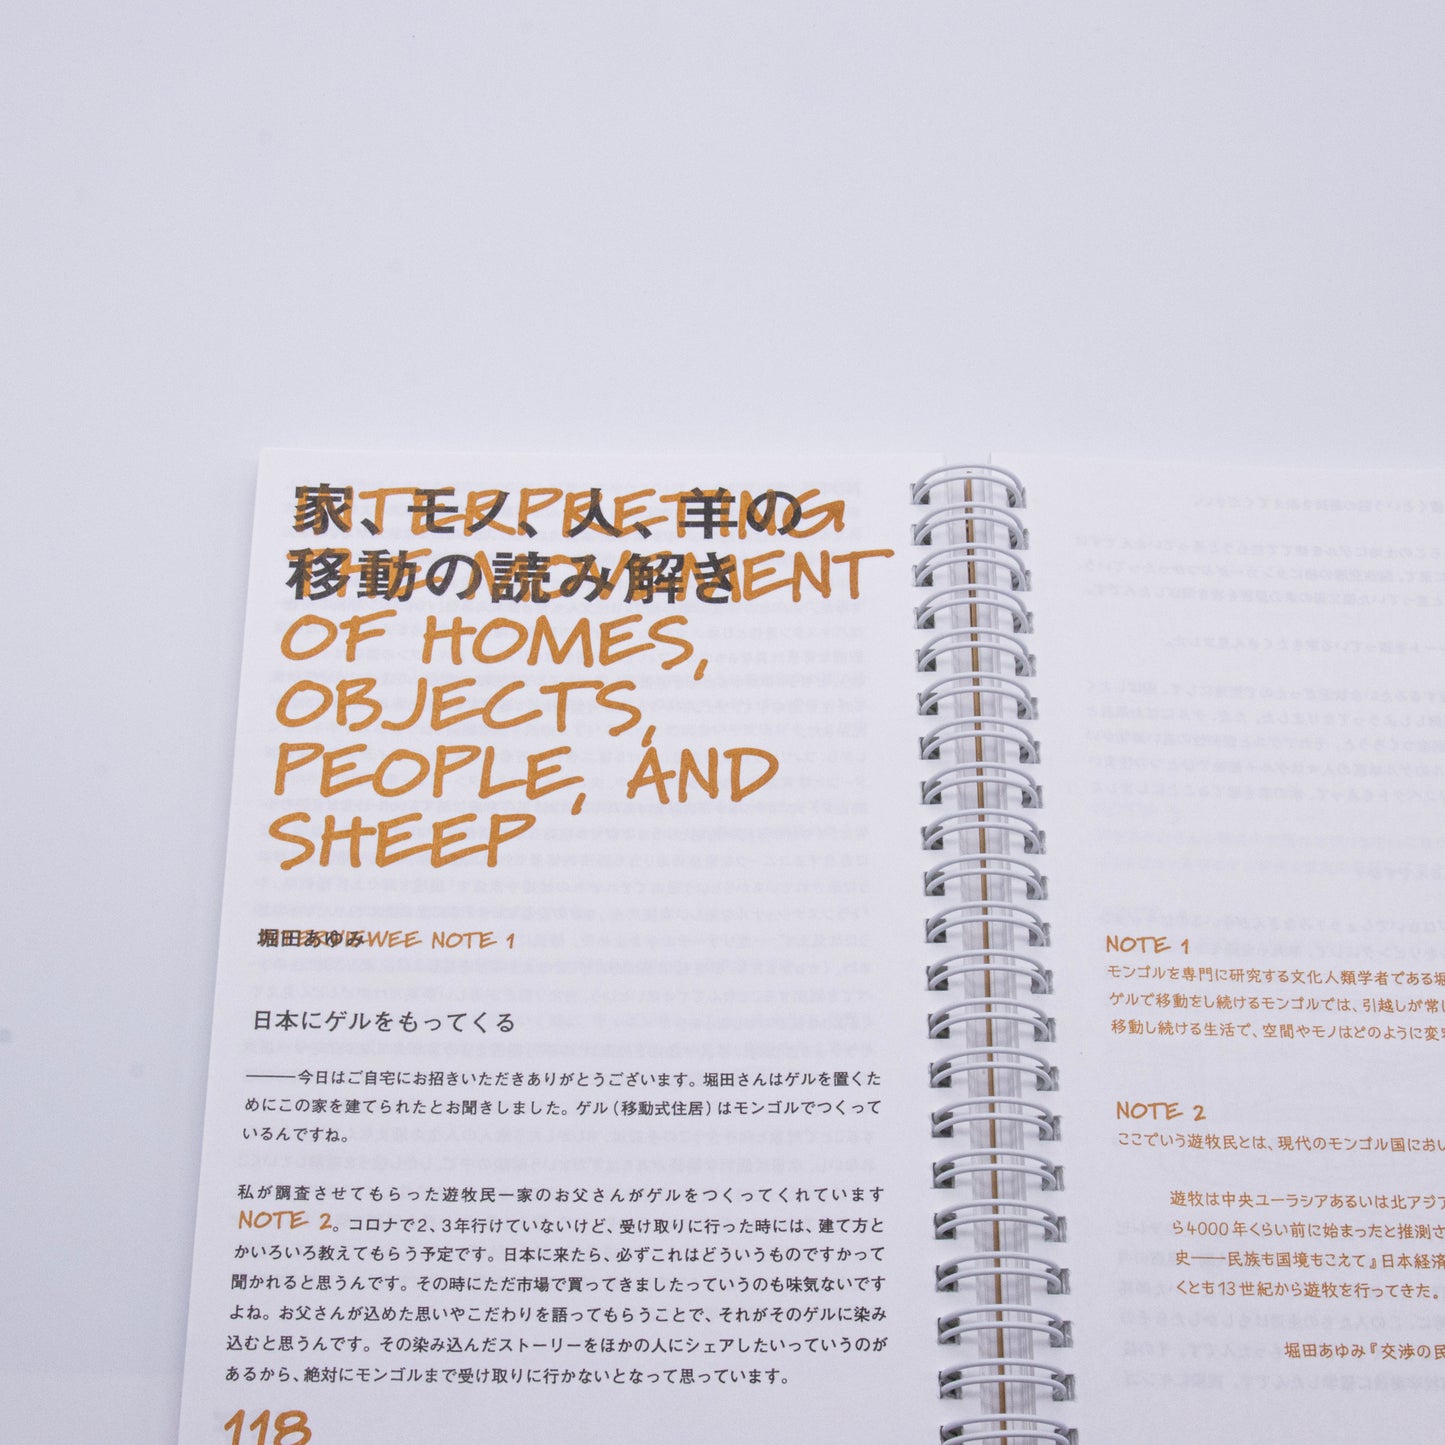 家、モノ、人、羊の
移動の読み解き
INTERPRETING
THE MOVEMENT
OF HOMES,
OBJECTS,
PEOPLE, AND
SHEEP
堀田あゆみ
INTERVIEWEE NOTE 1
日本にゲルをもってくる
――今日はご自宅にお招きいただきありがとうございます。堀田さんはゲルを置くた
めにこの家を建てられたとお聞きしました。ゲル（移動式住居）はモンゴルでつくって
いるんですね。
私が調査させてもらった遊牧民一家のお父さんがゲルをつくってくれています
NOTE 2。コロナで2、3年行けていないけど、受け取りに行った時には、建て方と
かいろいろ教えてもらう予定です。日本に来たら、必ずこれはどういうものですかって
聞かれると思うんです。その時にただ市場で買ってきましたっていうのも味気ないです
よね。お父さんが込めた思いやこだわりを語ってもらうことで、それがそのゲルに染み
込むと思うんです。その染み込んだストーリーをほかの人にシェアしたいっていうのが
あるから、絶対にモンゴルまで受け取りに行かないとなって思っています。
118
NOTE 1
モンゴルを専門に研究する文化人類学者である堀
ゲルで移動をし続けるモンゴルでは、引越しが常
移動し続ける生活で、空間やモノはどのように変
NOTE 2
ここでいう遊牧民とは、現代のモンゴル国におい
遊牧は中央ユーラシアあるいは北アジア
ら4000年くらい前に始まったと推測さ
史――民族も国境もこえて』日本経済
くとも13世紀から遊牧を行ってきた。
堀田あゆみ『交渉の民